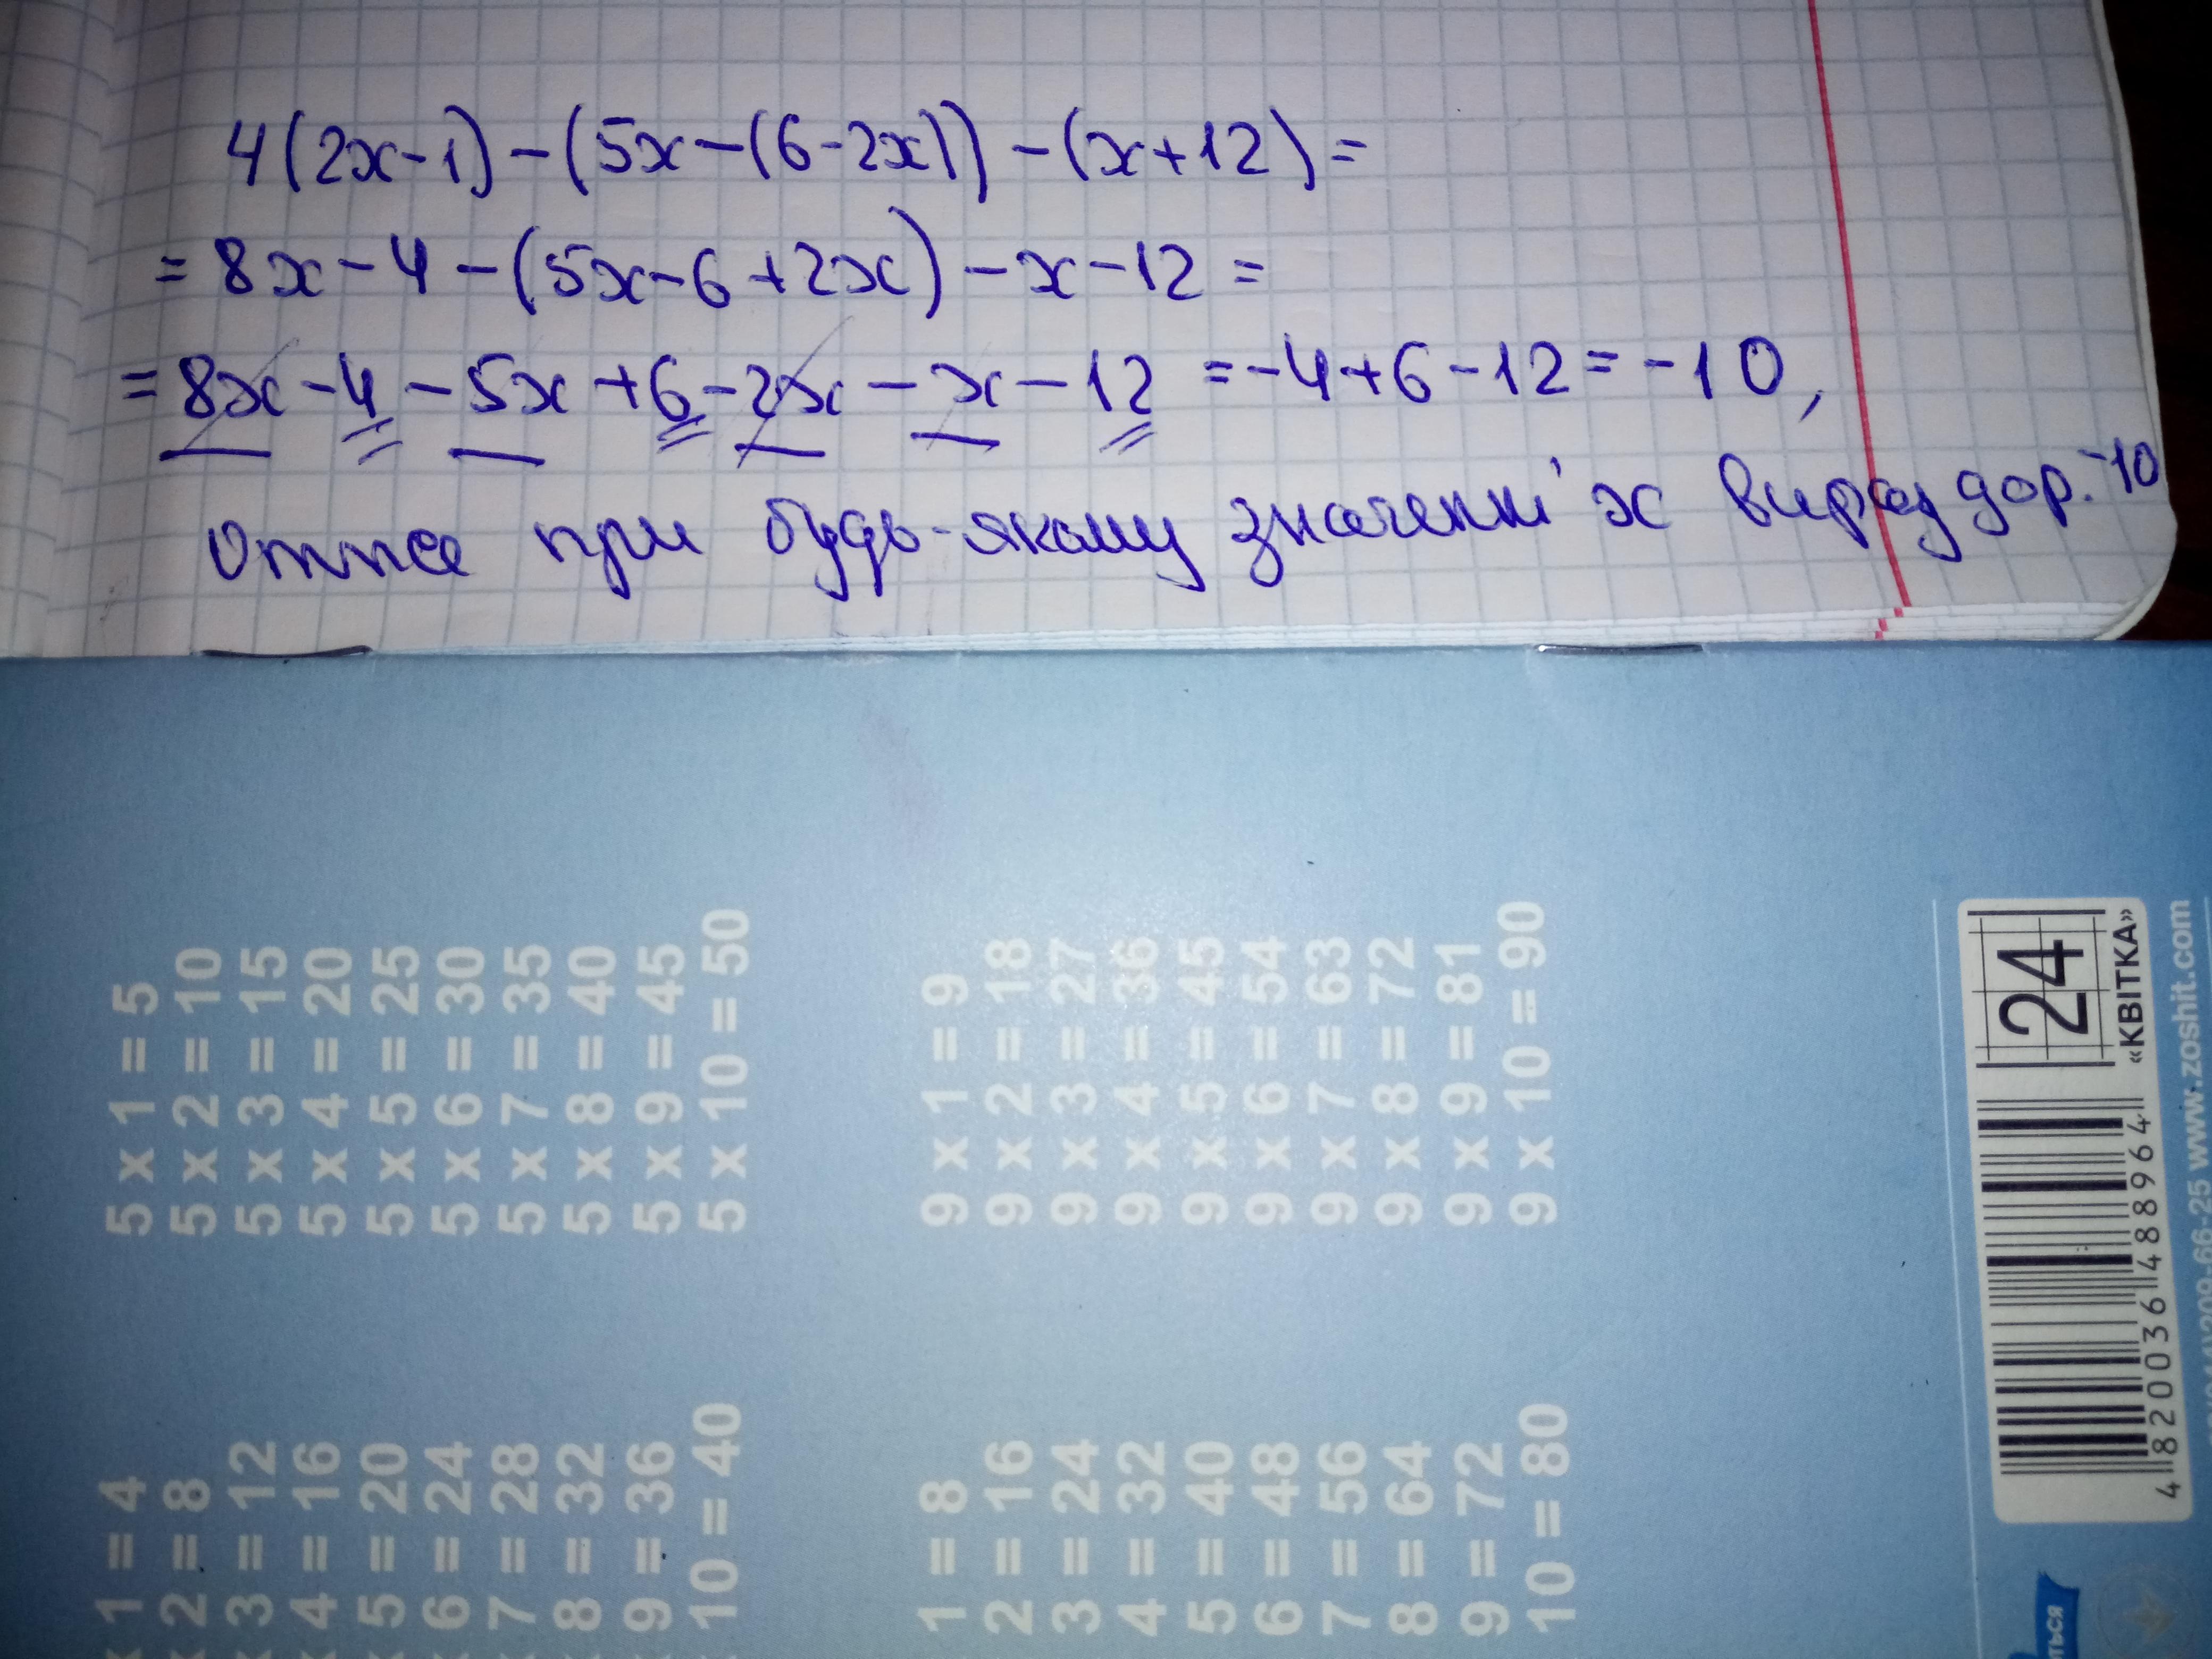 4(2x-1)-(5x-(6-2x))-(x+12)=
=8x-4-(5x-6+2x)-x-12=
=8x-4-5x+6-2x-x-12=-4+6-12=-10,
Отже при будь-якому значенні x вираз дор. -10
5 x 1 = 5
5 x 2 = 10
5 x 3 = 15
5 x 4 = 20
5 x 5 = 25
5 x 6 = 30
5 x 7 = 35
5 x 8 = 40
5 x 9 = 45
5 x 10 = 50
9 x 1 = 9
9 x 2 = 18
9 x 3 = 27
9 x 4 = 36
9 x 5 = 45
9 x 6 = 54
9 x 7 = 63
9 x 8 = 72
9 x 9 = 81
9 x 10 = 90
x 1 = 4
x 2 = 8
x 3 = 12
x 4 = 16
x 5 = 20
x 6 = 24
x 7 = 28
x 8 = 32
x 9 = 36
10 = 40
1 = 8
2 = 16
3 = 24
4 = 32
5 = 40
6 = 48
7 = 56
8 = 64
9 = 72
10 = 80
24
«КВІТКА»
4 820036 488964
209-66-25 www.zoshit.com
ться